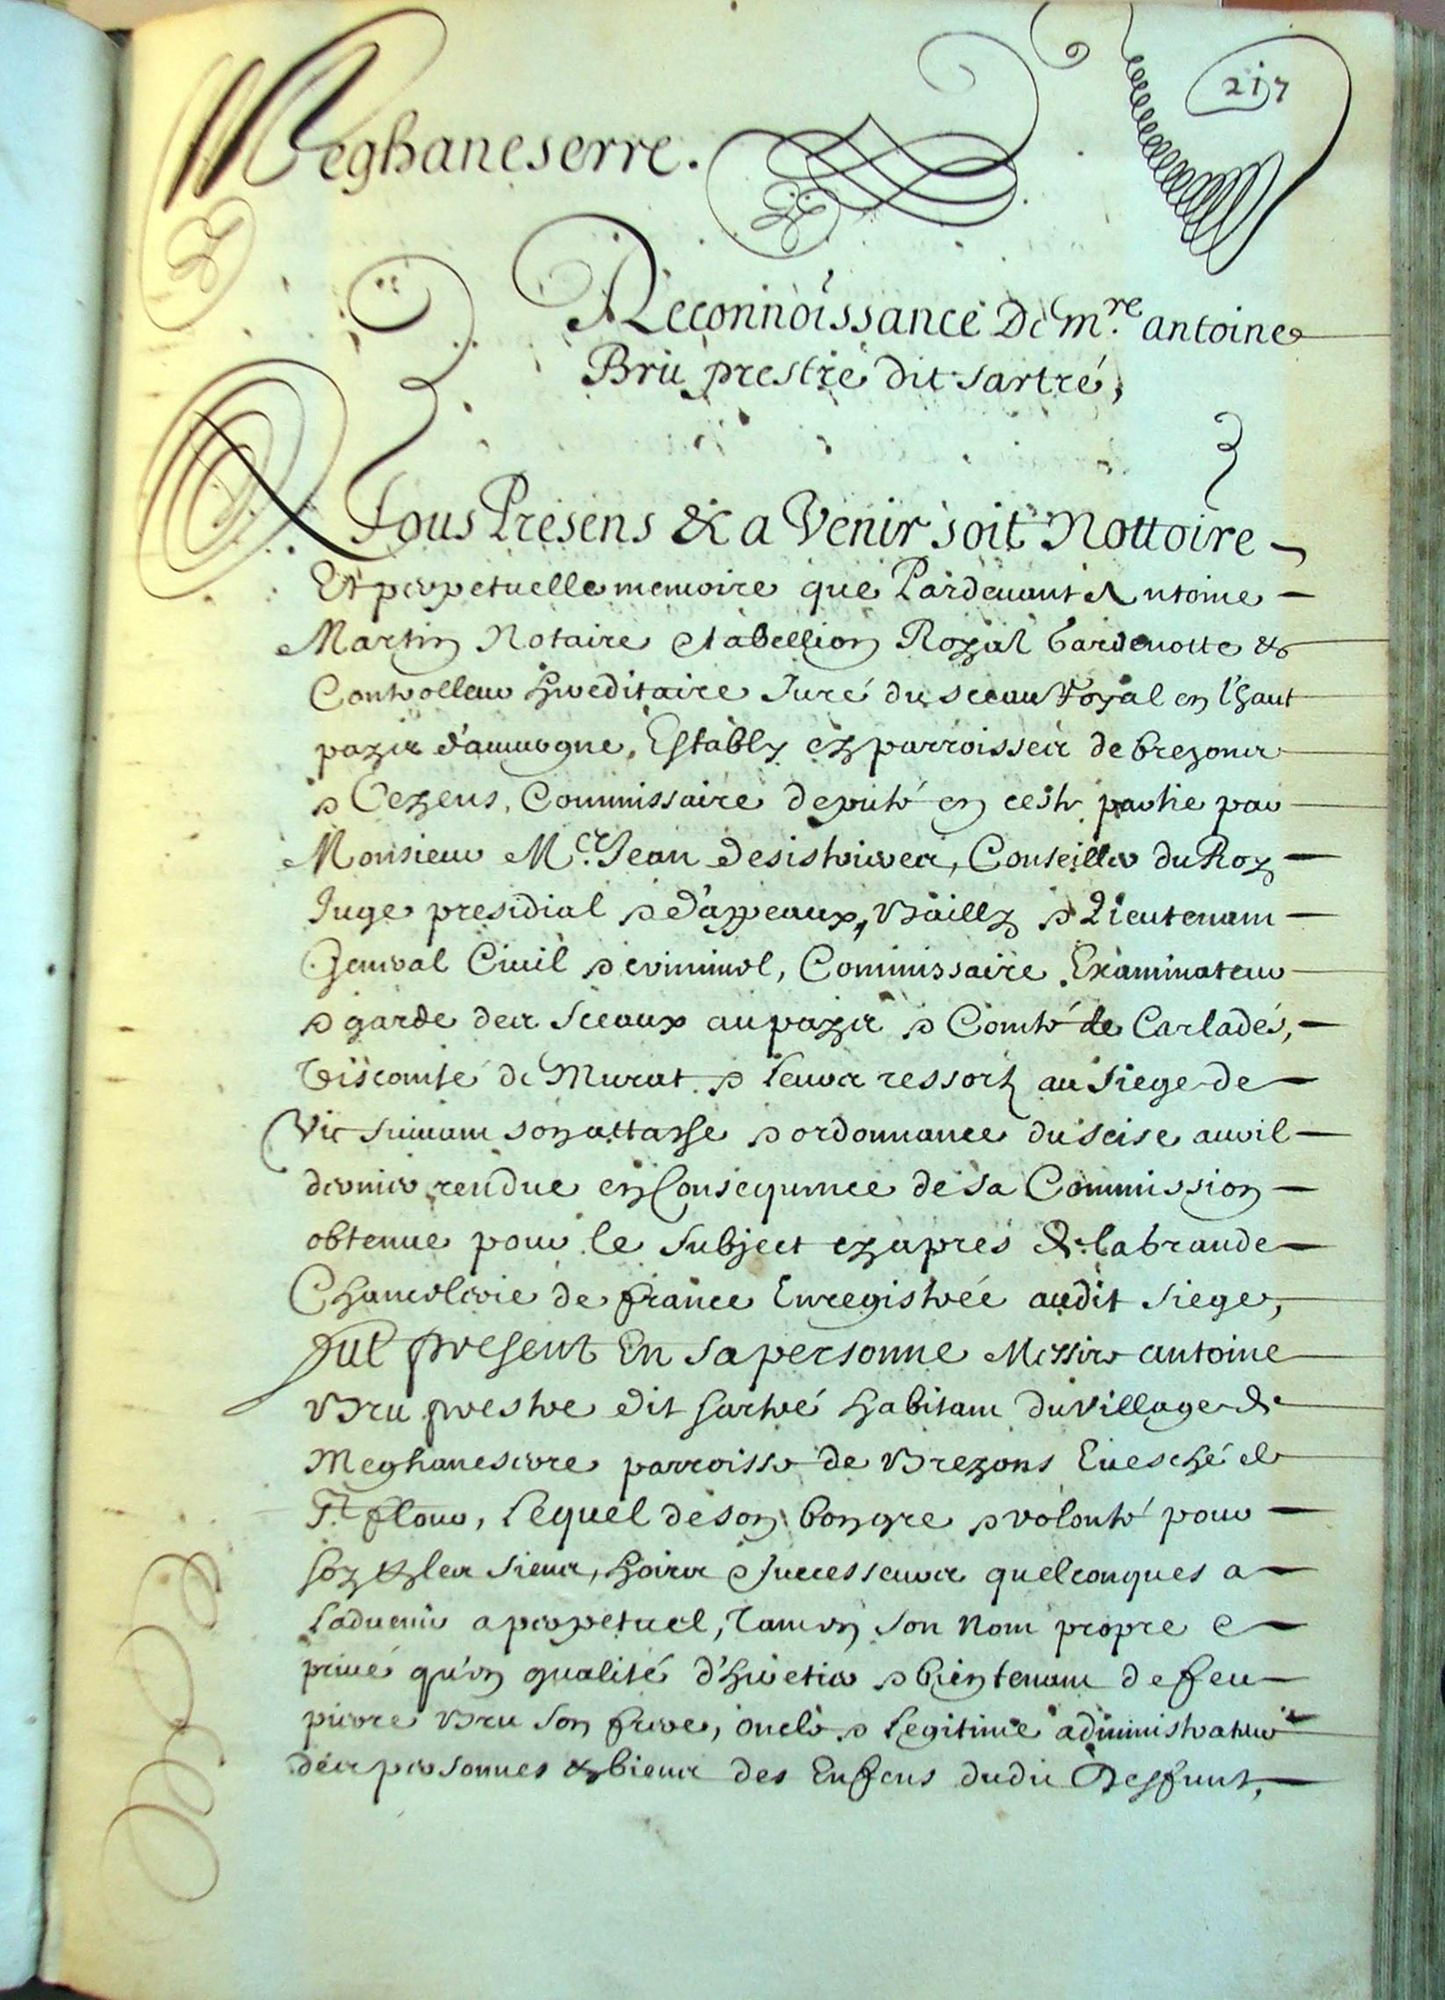 217
Meghaneserre.
Reconnoissance De m.re antoine
Bru prestre dit sartré,
A Tous Presens & a Venir soit Nottoire
Et perpetuelle memoire que Pardevant Antoine
Martin Notaire & tabellion Royal Gardenotte &
Controlleur hereditaire Juré du sceau Royal en l'haut
payis d'auvergne, Estably ez parroisses de brezons
& Cezens, Commissaire deputé en ceste partie par
Monsieur M.e Jean Desistrieres, Conseiller du Roy
Juge presidial & d'appeaux, Bailly & Lieutenant
General Civil & criminel, Commissaire Examinateur
& garde des sceaux au payis & Comté de Carladés,
Viscomté de Murat & leurs ressortz au siege de
Vic suivant son attache & ordonnance du seise avril
dernier rendue en Consequence de sa Commission
obtenue pour le subject cy apres de la grande
Chancelerie de france Enregistrée audit siege,
Fut present En sa personne Messire antoine
Bru prestre dit sartré habitant du village de
Meghaneserre parroisse de Brezons Evesché de
S.t flour, Lequel de son bon gre & volonté pour
soy & les siens, hoirs & successeurs quelconques a
l'advenir a perpetuel, Tant en son Nom propre &
privé qu'en qualité d'heretier & bientenant de feu
pierre Bru son frere, oncle & legitime administrateur
des personnes & biens des Enfens dudit Desfunt,